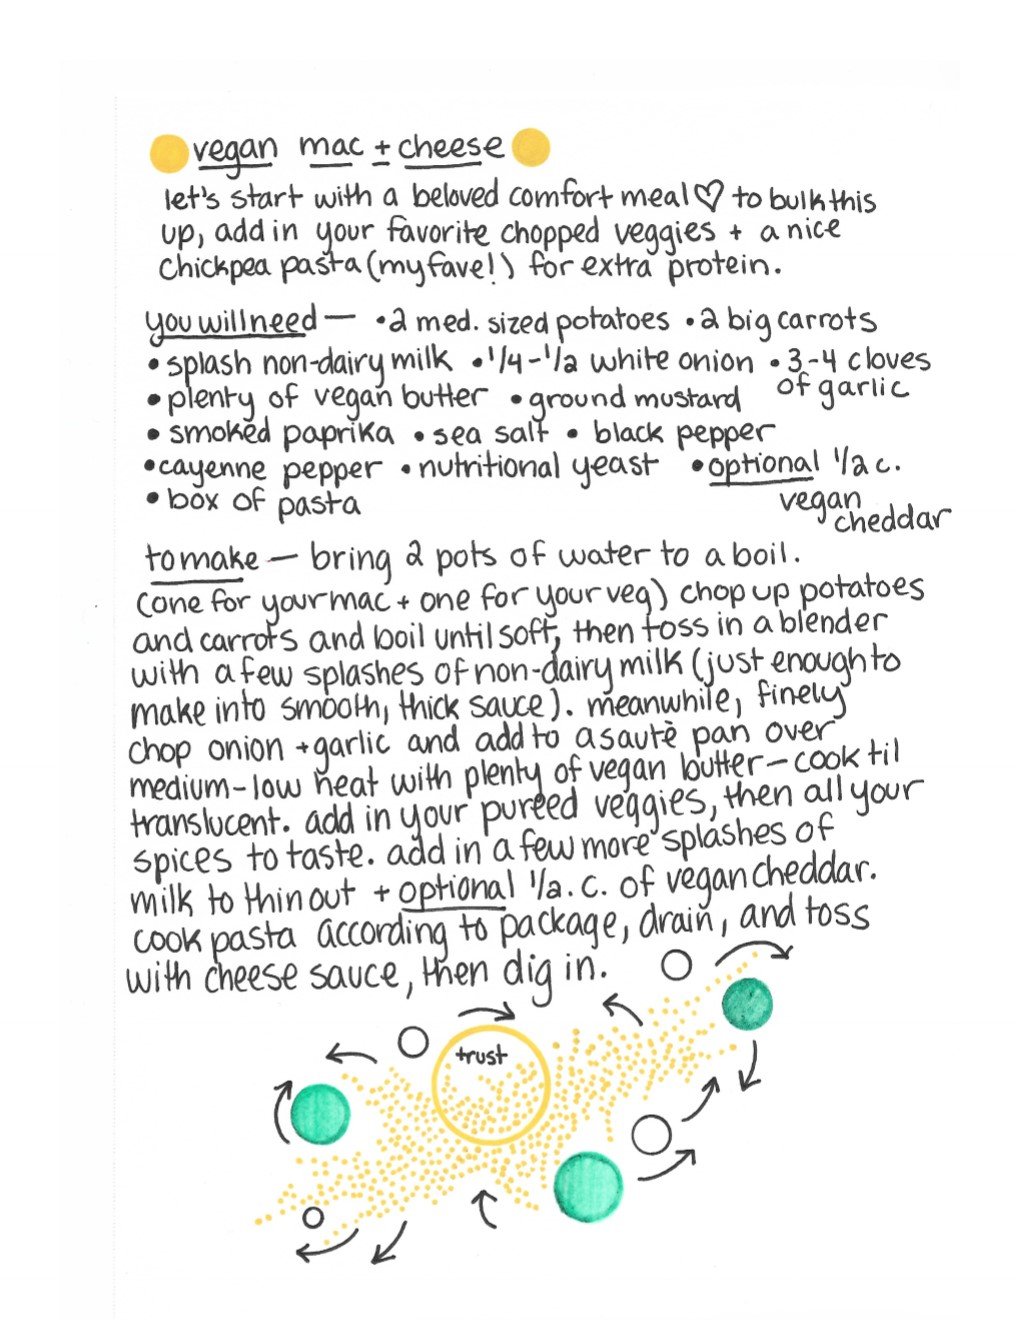 vegan mac + cheese
let's start with a beloved comfort meal♡ to bulk this
up, add in your favorite chopped veggies + a nice
chickpea pasta (my fave!) for extra protein.
you will need — • 2 med. sized potatoes • 2 big carrots
• splash non-dairy milk • 1/4-1/2 white onion • 3-4 cloves
of garlic
• plenty of vegan butter • ground mustard
• smoked paprika • sea salt • black pepper
• cayenne pepper • nutritional yeast • optional 1/2 c.
vegan
cheddar
• box of pasta
to make — bring 2 pots of water to a boil.
(one for your mac + one for your veg) chop up potatoes
and carrots and boil until soft, then toss in a blender
with a few splashes of non-dairy milk (just enough to
make into smooth, thick sauce). meanwhile, finely
chop onion + garlic and add to a sautè pan over
medium-low heat with plenty of vegan butter — cook til
translucent. add in your pureed veggies, then all your
spices to taste. add in a few more splashes of
milk to thin out + optional 1/2. c. of vegan cheddar.
cook pasta according to package, drain, and toss
with cheese sauce, then dig in.
trust